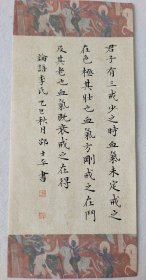 君子有三戒少之時血氣未定戒之
在色極其壯也血氣方剛戒之在鬥
及其老也血氣既衰戒之在得
論語季氏 乙巳秋月 邵士平書